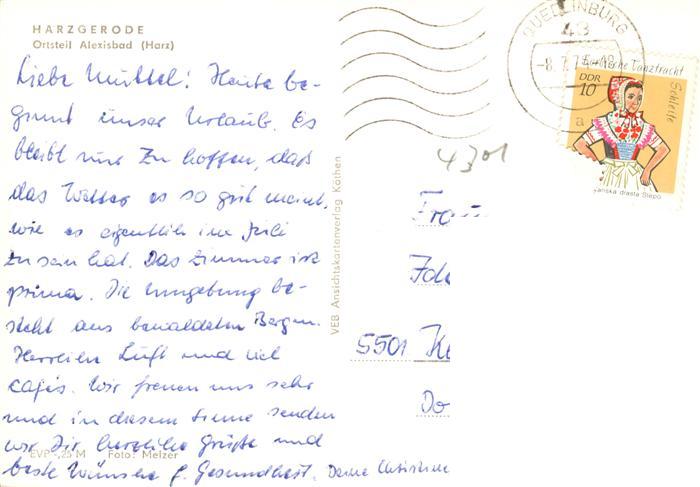 HARZGERODE
Ortsteil Alexisbad (Harz)
Liebe Muttel! Heute be-
ginnt unser Urlaub. Es
bleibt nur zu hoffen, daß
das Wetter es so gut meint,
wie es eigentlich im Juli
zu sein hat. Das Zimmer ist
prima. Die Umgebung be-
steht aus bewaldeten Bergen.
Herrliche Luft und viel
Cafés. Wir freuen uns sehr
und in diesem Sinne senden
wir Dir herzliche Grüße und
beste Wünsche f. Gesundheit. Deine Christine
EVP -,25 M Foto: Melzer
VEB Ansichtskartenverlag Köthen
QUEDLINBURG
43
-8.7.7
a
Sorbische Tanztracht
DDR
10
Schleife
drasta Slepo
4301
5501